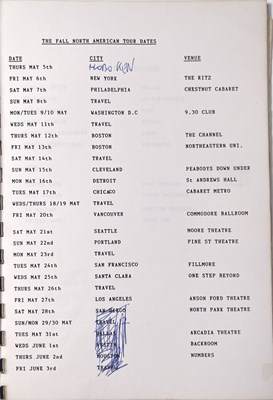 THE FALL NORTH AMERICAN TOUR DATES
DATE CITY VENUE
THURS MAY 5th HOBOKEN
FRI MAY 6th NEW YORK THE RITZ
SAT MAY 7th PHILADELPHIA CHESTNUT CABARET
SUN MAY 8th TRAVEL
MON/TUES 9/10 MAY WASHINGTON D.C 9.30 CLUB
WEDS MAY 11th TRAVEL
THURS MAY 12th BOSTON THE CHANNEL
FRI MAY 13th BOSTON NORTHEASTERN UNI.
SAT MAY 14th TRAVEL
SUN MAY 15th CLEVELAND PEABODYS DOWN UNDER
MON MAY 16th DETROIT St ANDREWS HALL
TUES MAY 17th CHICAGO CABARET METRO
WEDS/THURS 18/19 MAY TRAVEL
FRI MAY 20th VANCOUVER COMMODORE BALLROOM
SAT MAY 21st SEATTLE MOORE THEATRE
SUN MAY 22nd PORTLAND PINE ST THEATRE
MON MAY 23rd TRAVEL
TUES MAY 24th SAN FRANCISCO FILLMORE
WEDS MAY 25th SANTA CLARA ONE STEP BEYOND
THURS MAY 26th TRAVEL
FRI MAY 27th LOS ANGELES ANSON FORD THEATRE
SAT MAY 28th SAN DIEGO NORTH PARK THEATRE
SUN/MON 29/30 MAY TRAVEL
TUES MAY 31st DALLAS ARCADIA THEATRE
WEDS JUNE 1st AUSTIN BACKROOM
THURS JUNE 2nd HOUSTON NUMBERS
FRI JUNE 3rd TRAVEL